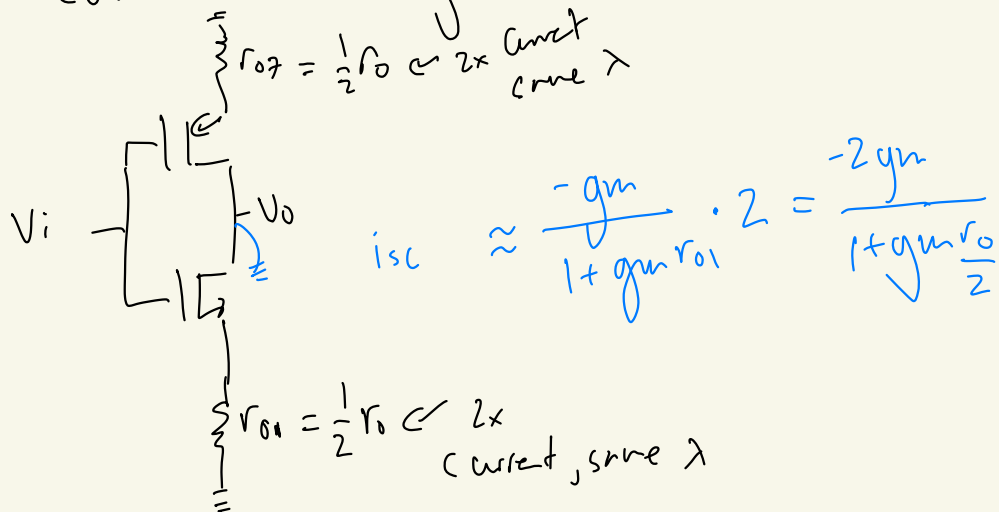 r07 = 1/2 r0 ↙ 2x
λ
Vi
Vo
isc ≈ -gm / (1 + gm r01) · 2 = -2gm / (1 + gm r0/2)
r01 = 1/2 r0 ↙ 2x
current, same λ